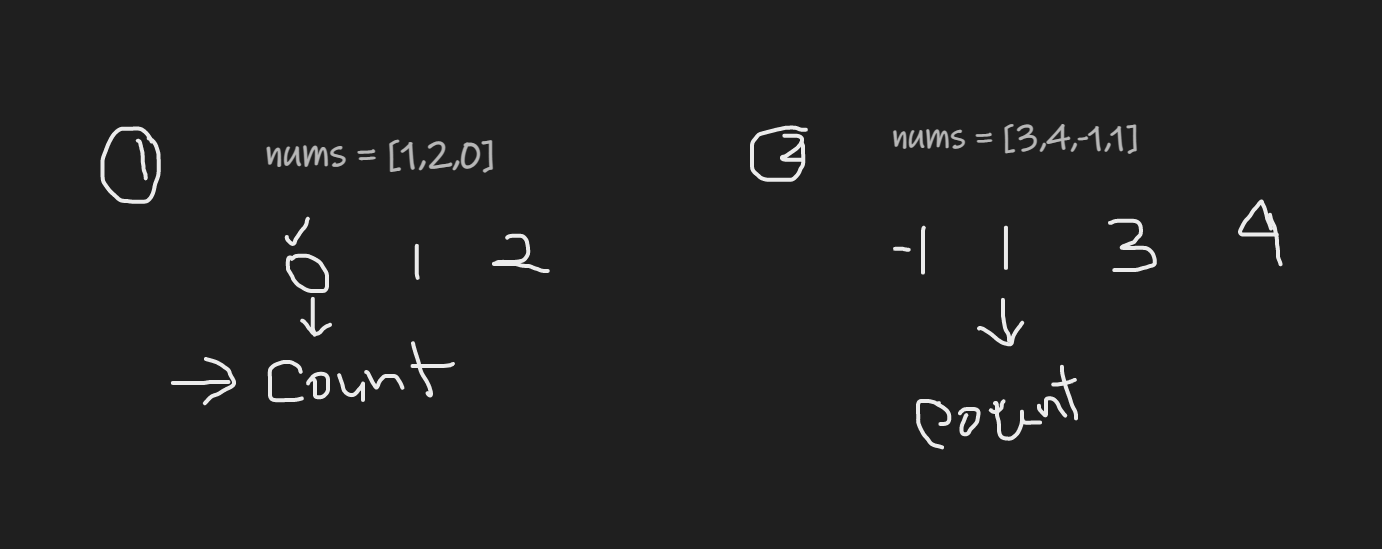 ① nums = [1,2,0]
0 1 2
→ Count
② nums = [3,4,-1,1]
-1 1 3 4
count